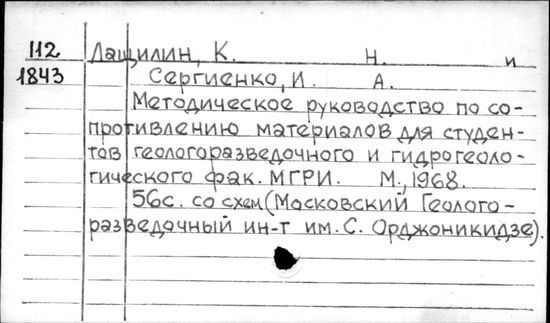 112 Лащилин, К. Н. и
1843 Сергиенко, И. А.
Методическое руководство по со-
противлению материалов для студен-
тов геологоразведочного и гидрогеоло-
гического фак. МГРИ. М., 1968.
56с. со схем (Московский Геолого-
разведочный ин-т им. С. Орджоникидзе).